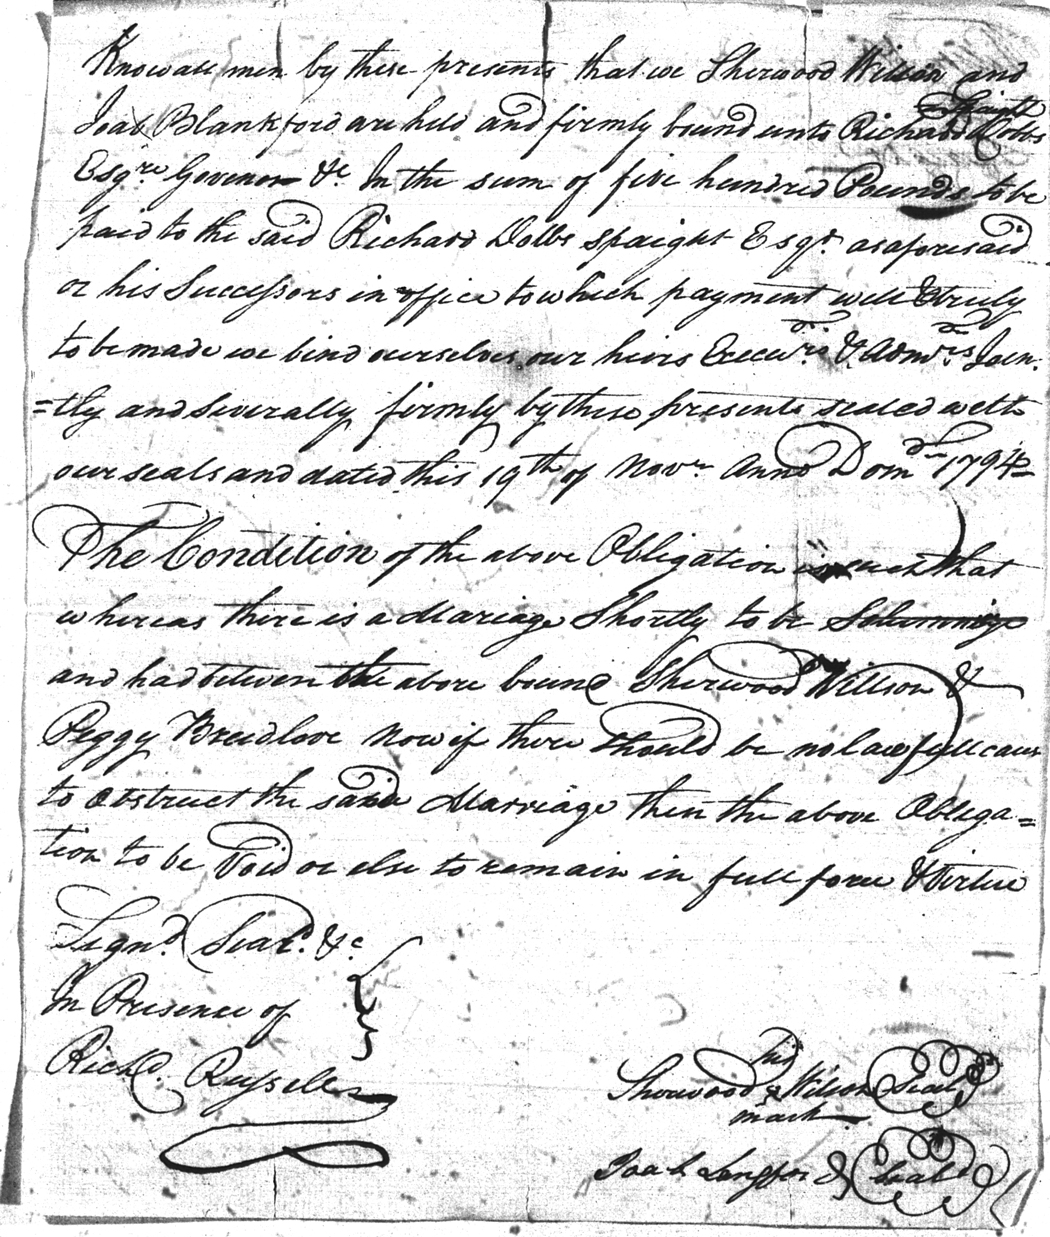 Know all men by these presents that we Sherwood Willson and
Joab Blankford are held and firmly bound unto Richard Dobbs Spaight
Esqre Govenor &c In the sum of five hundred Pounds to be
paid to the said Richard Dobbs Spaight Esqr. as aforesaid
or his Successors in office to which payment well & truly
to be made we bind ourselves our heirs Execurs & Admrs Join
=tly and Severally firmly by these presents sealed with
our seals and dated this 19th of Novr Anno Domi 1794
The Condition of the above Obligation is such that
whereas there is a Marriage Shortly to be Solumnize
and had between the above bound Sherwood Willson &
Peggy Breedlove Now if there should be no lawfull caus
to obstruct the said Marriage then the above Obliga=
tion to be Void or else to remain in full force & Virtue
Signd. Seald. &c
In Presence of
Richd. Russell
his
Sherwood Wilson Seal
mark
Joab Seal